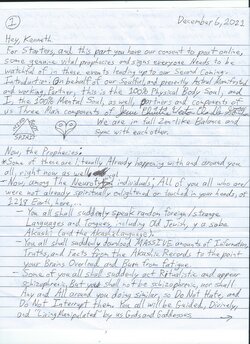 1
December 6, 2021
Hey, Kenneth
For Starters, and this part you have our consent to post online,
some genuine vital prophecies and signs everyone Needs to be
watchful of in these events leading up to our Second Coming.
Introduction: On behalf of our Soulful, and presently Astral Manifested
and working Partner, this is the 100% Physical Body Soul, and
I, the 100% Mental Soul, as well, Partners and components of
us Three Main components of
We are in full Zen-like Balance and
Sync with each other.
Now, the Prophecies:
Some of these are literally Already happening with and around you
all, right now as well
Now, among the individuals, All of you who are/
were not already spiritually enlightened or tuned in your heads, on
1218 Earth, here...
- You all shall suddenly Speak random Foreign/Strange
Languages and Tongues, including Old Jewish,
Akashi (and the Akashi language).
- You all shall suddenly download MASSIVE amounts of Information,
Truths, and Facts from the Akashic Records to the point
your Brains Overload and Burn from Fatigue.
- Some of you all shall suddenly act Ritualistic and appear
schizophrenic, But you shall not be schizophrenic, nor shall
Any and All around you doing similar, so Do Not Hate, and
Do Not Interrupt them. You all will be Guided, Divinely,
and "Living Manipulated" by us Gods and Goddesses